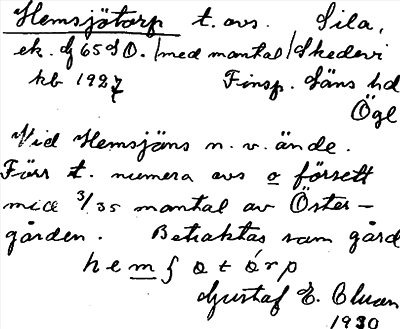 Hemsjötorp t. avs. Sila,
ek. bl 65 SO. /med mantal/ Skedevi
kb 1927 Finsp. läns hd
Ögl
Vid Hemsjöns n.v. ände.
Förr t. numera avs o försett
med 3/35 mantal av Öster-
gården. Betraktas som gård
hemʃötórp
Gustaf E. Cluan
1930